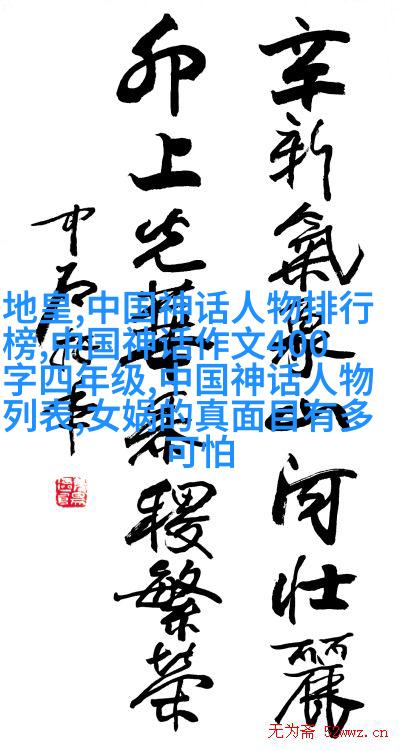 辛新氣象山河壯麗
卯上光華黍稷繁榮
中石
地皇,中国神话人物排行
榜,中国神话作文400
字四年级,中国神话人物
列表,女娲的真面目有多
可怕
无为斋 52wwz.cn